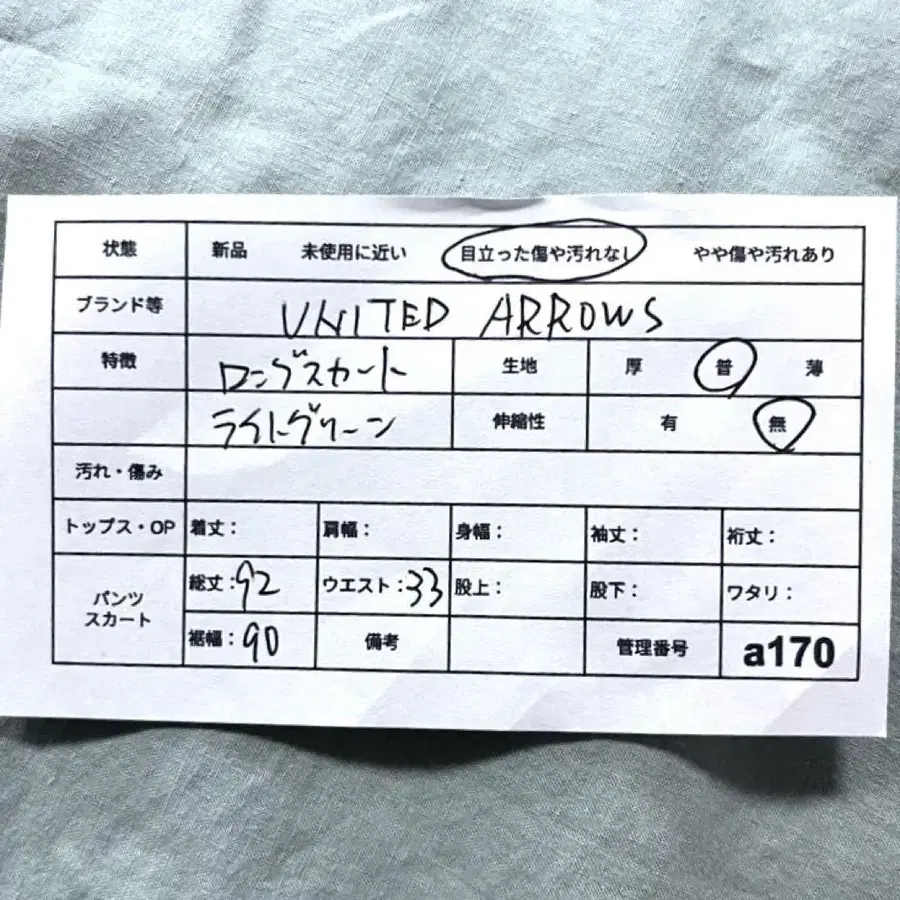 状態 新品 未使用に近い 目立った傷や汚れなし やや傷や汚れあり
ブランド等 UNITED ARROWS
特徴 ロングスカート 生地 厚 普 薄
ライトグリーン 伸縮性 有 無
汚れ・傷み
トップス・OP 着丈： 肩幅： 身幅： 袖丈： 裄丈：
パンツ スカート 総丈：92 ウエスト：33 股上： 股下： ワタリ：
裾幅：90 備考 管理番号 a170